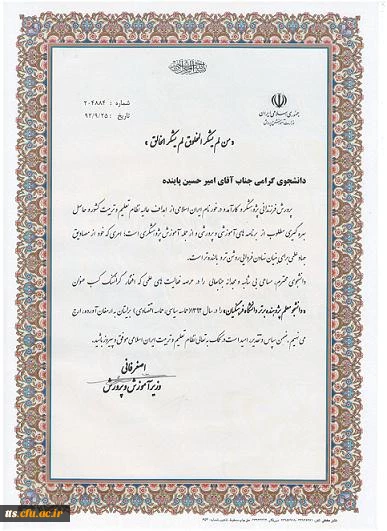 جمهوری اسلامی ایران
وزارت آموزش و پرورش
شماره : ۲۰۴۸۸۴
تاریخ : ۹۲/۹/۲۵
«من لم یشکر المخلوق لم یشکر الخالق»
دانشجوی گرامی جناب آقای امیر حسین پاینده
پرورش فرزندانی پژوهشگر و کارآمد در خور نام ایران اسلامی از اهداف عالیه نظام تعلیم و تربیت کشور و حاصل
بهره گیری مطلوب از برنامه های آموزشی و پرورشی و از جمله آموزش پژوهشگری است؛ امری که خود از مصادیق
جهاد علمی برای بنیان نهادن فردایی روشن تر و بالنده تر است.
دانشجوی محترم، مساعی بی شائبه و مجدانه جنابعالی را در عرصه فعالیت های علمی که افتخار گرانسنگ کسب عنوان
«دانشجو معلم پژوهنده برتر دانشگاه فرهنگیان» را در سال ۱۳۹۲ (حماسه سیاسی، حماسه اقتصادی) برایتان به ارمغان آورده، ارج
می نهیم. ضمن سپاس و تقدیر، امید است در کمک به تعالی نظام تعلیم و تربیت ایران اسلامی موفق و پیروز باشید.
علی اصغر فانی
وزیر آموزش و پرورش
us.cfu.ac.ir